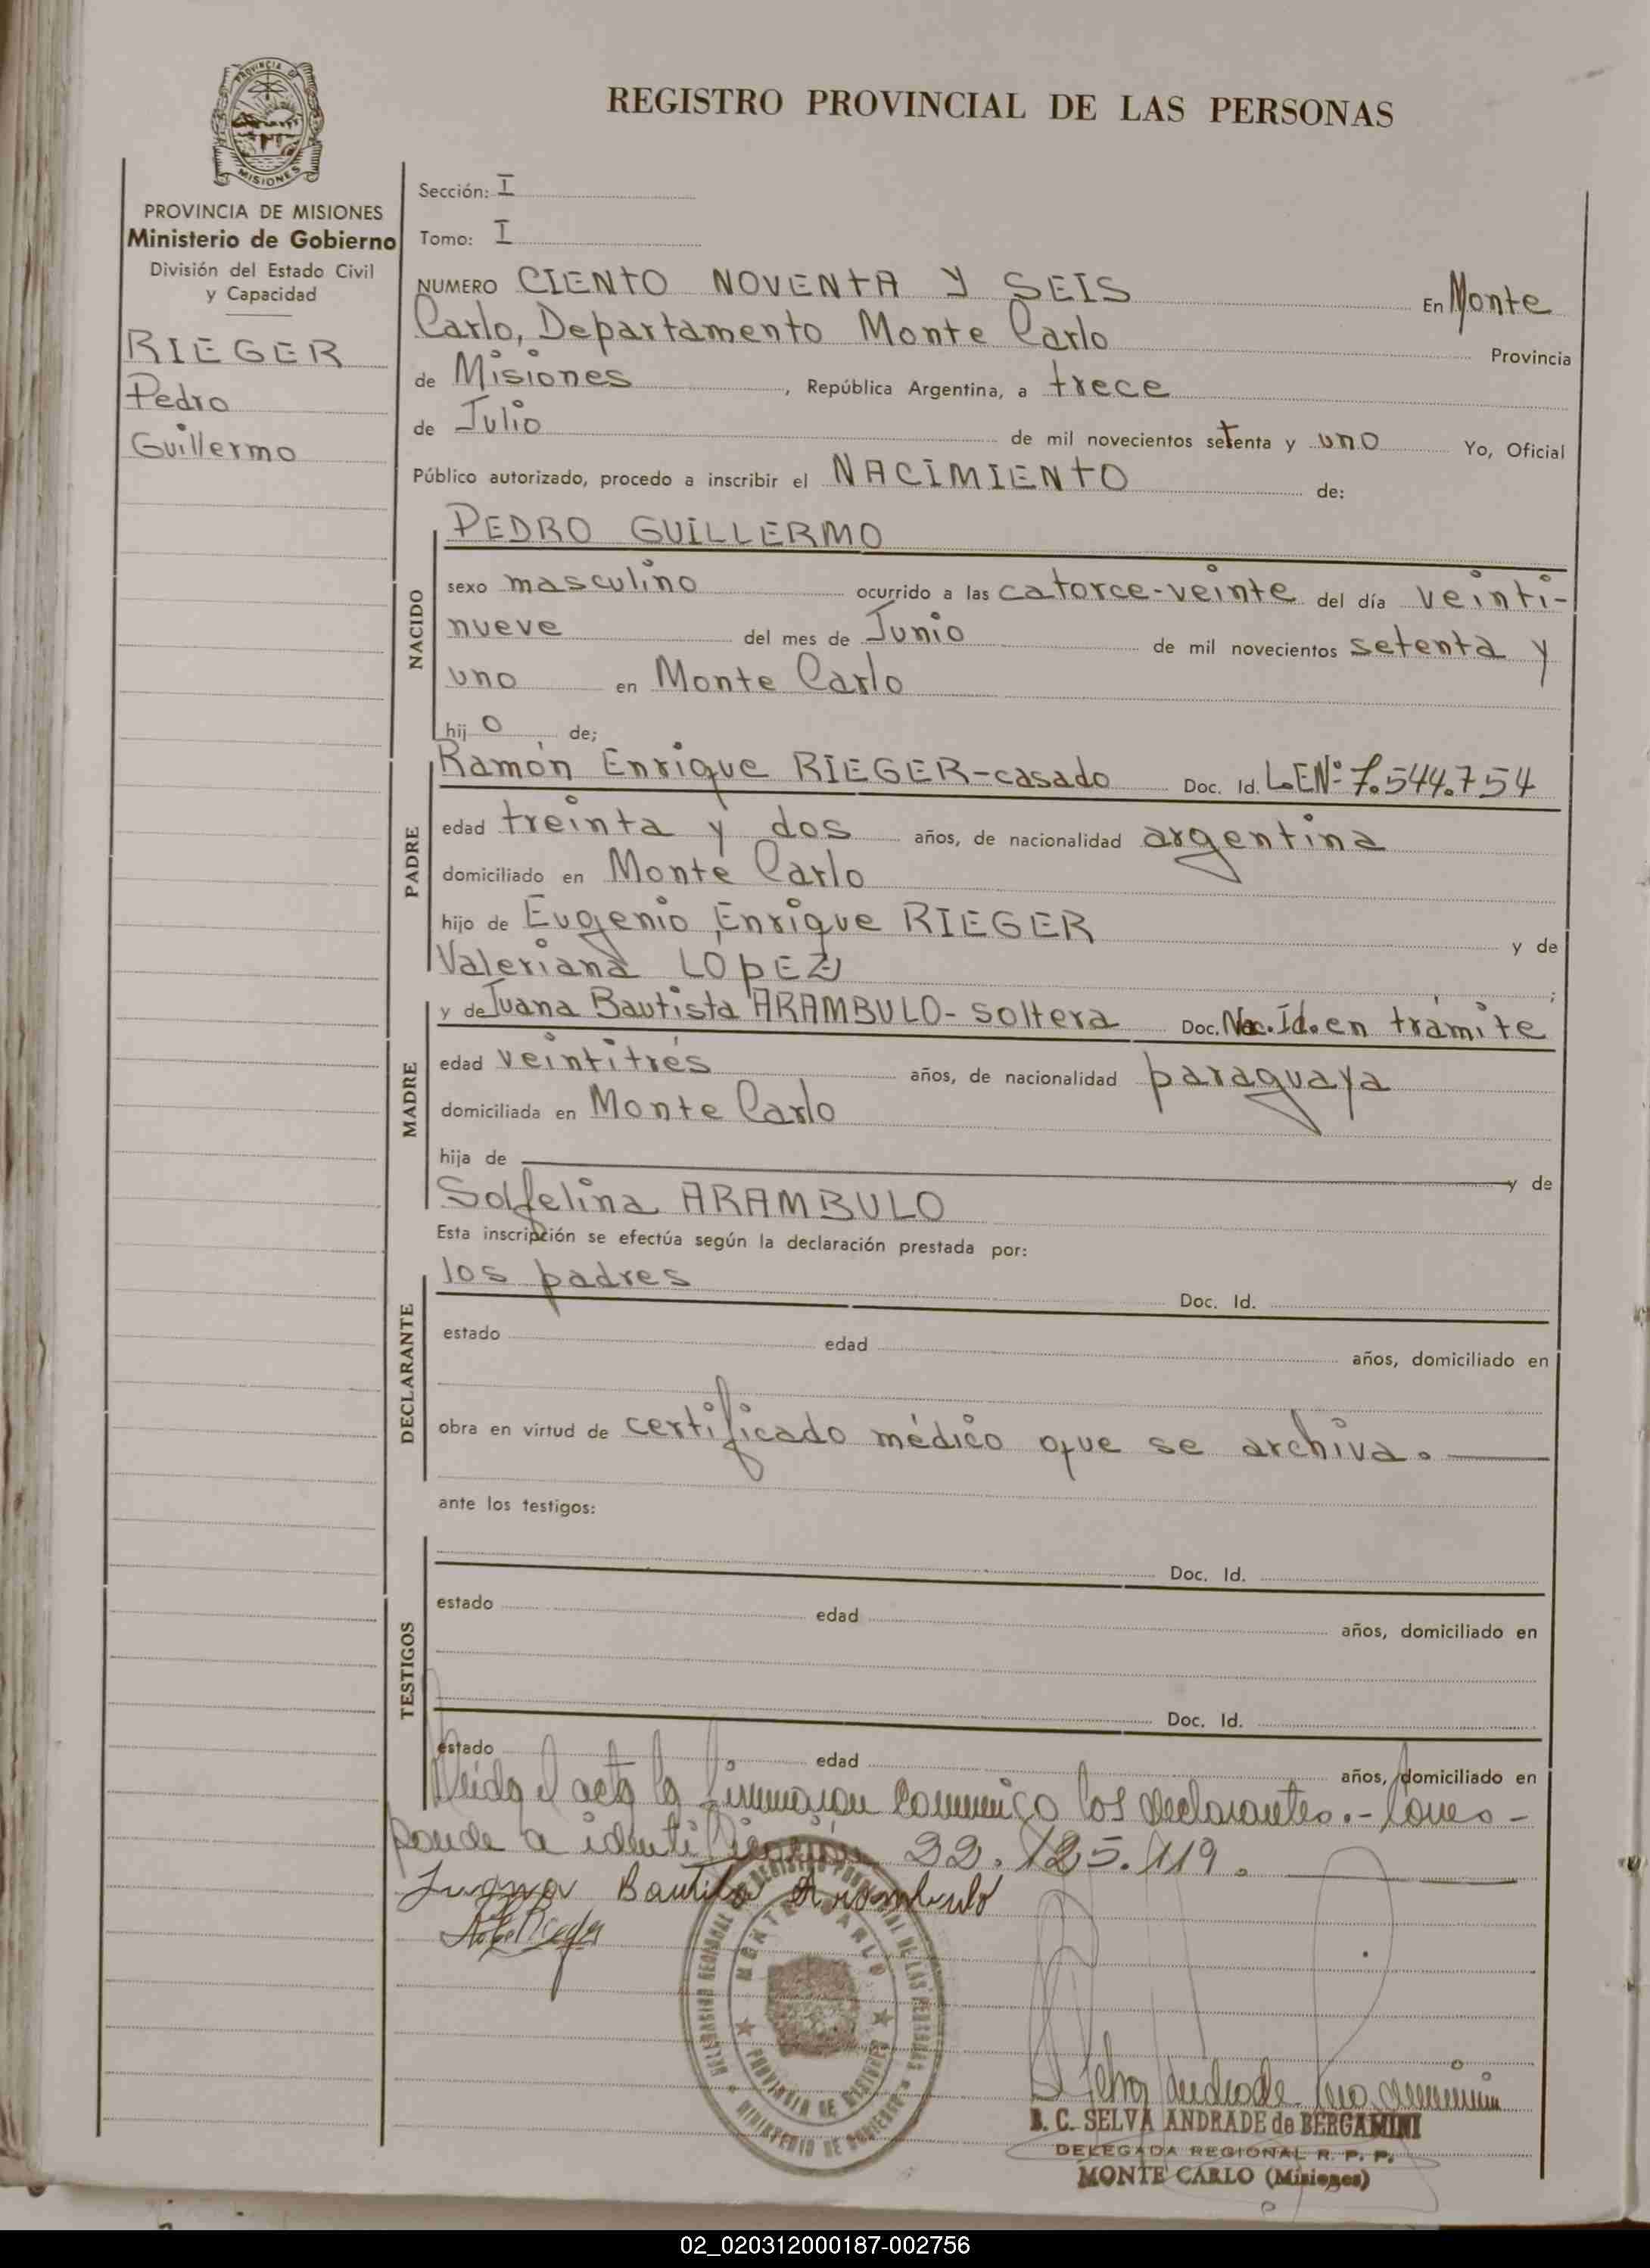 PROVINCIA DE
MISIONES
REGISTRO PROVINCIAL DE LAS PERSONAS
PROVINCIA DE MISIONES
Ministerio de Gobierno
División del Estado Civil
y Capacidad
RIEGER
Pedro
Guillermo
Sección: I
Tomo: I
NUMERO CIENTO NOVENTA Y SEIS En Monte
Carlo, Departamento Monte Carlo Provincia
de Misiones, República Argentina, a trece
de Julio de mil novecientos setenta y uno Yo, Oficial
Público autorizado, procedo a inscribir el NACIMIENTO de:
NACIDO
PEDRO GUILLERMO
sexo masculino ocurrido a las catorce-veinte del día veinti-
nueve del mes de Junio de mil novecientos setenta y
uno en Monte Carlo
hijo de;
PADRE
Ramón Enrique RIEGER-casado Doc. Id. L.E.Nº 7.544.754
edad treinta y dos años, de nacionalidad argentina
domiciliado en Monte Carlo
hijo de Eugenio Enrique RIEGER y de
Valeriana LOPEZ ;
MADRE
y de Juana Bautista ARAMBULO- soltera Doc. Nac. Id. en trámite
edad veintitrés años, de nacionalidad paraguaya
domiciliada en Monte Carlo
hija de y de
Solfelina ARAMBULO
Esta inscripción se efectúa según la declaración prestada por:
DECLARANTE
los padres Doc. Id.
estado edad años, domiciliado en
obra en virtud de certificado médico que se archiva.
ante los testigos:
TESTIGOS
Doc. Id.
estado edad años, domiciliado en
Doc. Id.
estado edad años, domiciliado en
Leída el acta la firmaron conmigo los declarantes.- Corres-
ponde a identificación 22.125.119.
Juana Bautista Arambulo
MONTE CARLO
PROVINCIA DE MISIONES
MINISTERIO DE GOBIERNO
B. C. SELVA ANDRADE de BERGAMINI
DELEGADA REGIONAL R. P. P.
MONTE CARLO (Misiones)
02_020312000187-002756